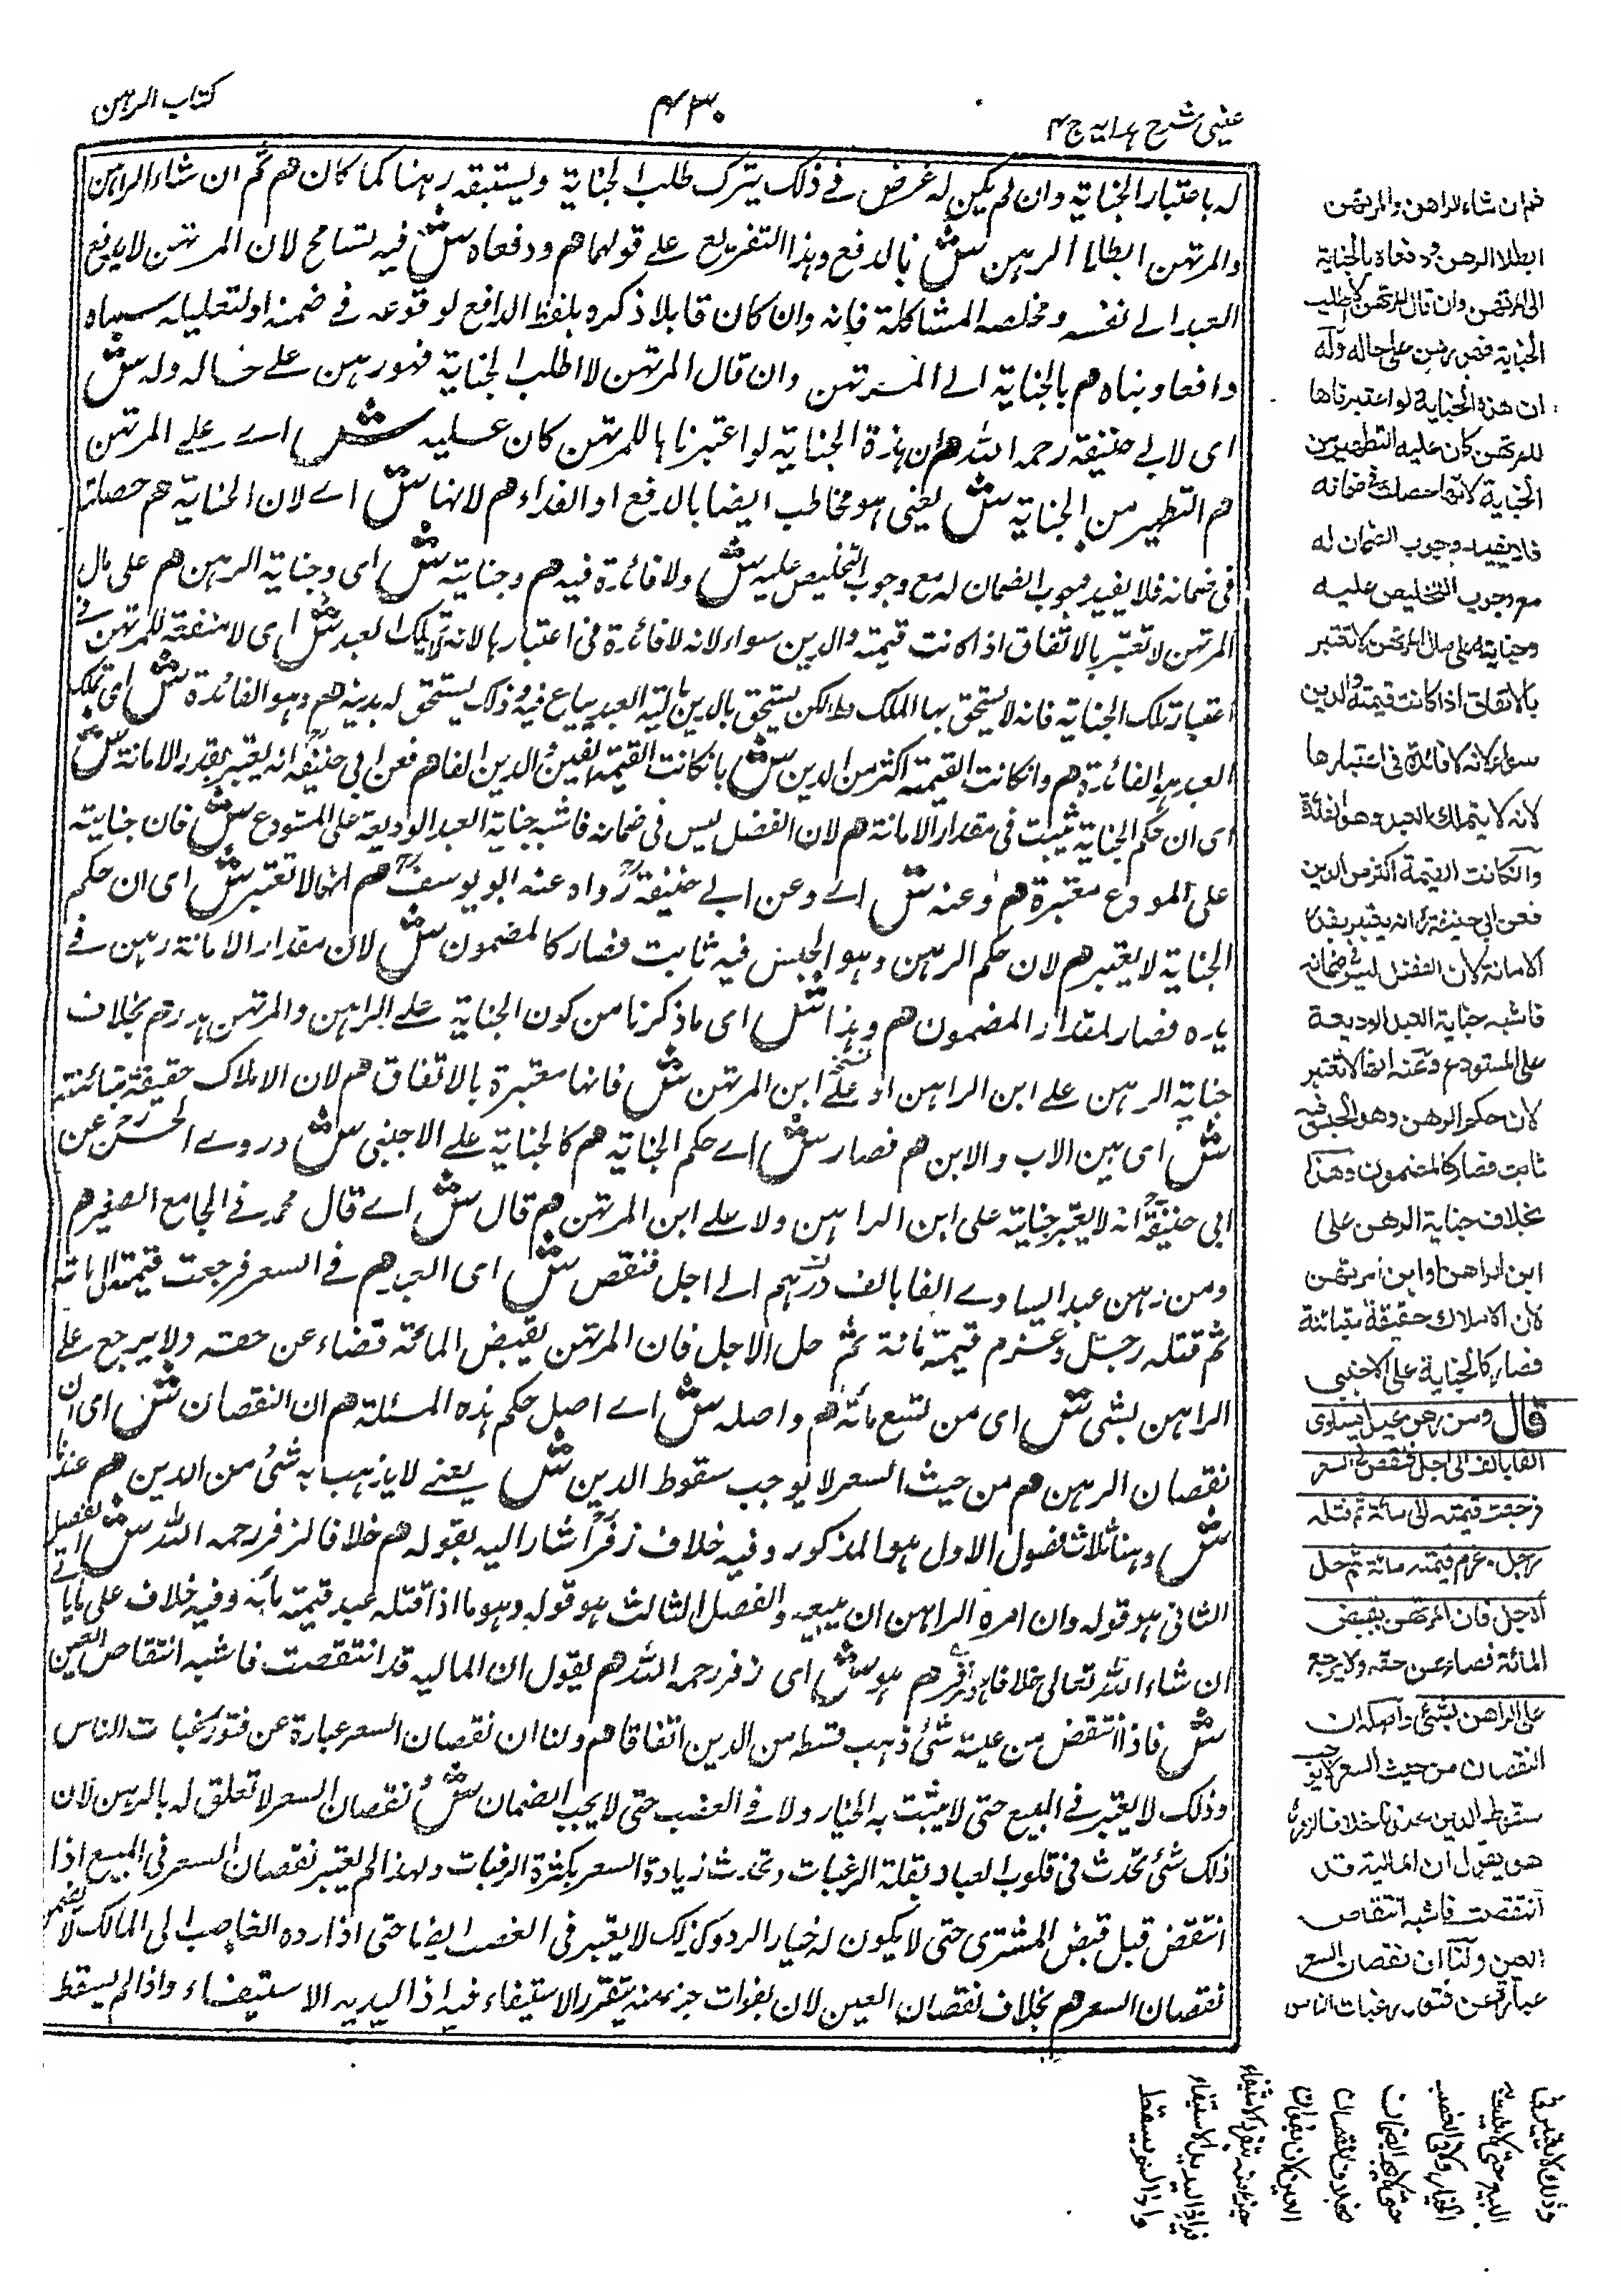 عینی شرح هدایه ج ۴
۴۳۰
کتاب الرهن
له باعتبار الجناية وان لم يكن له غرض في ذلك يترك طلب الجناية ويستبقه رهنا كما كان هم ثم ان شاء الراهن
والمرتهن ابطلا الرهن ش بالدفع وهذا التفريع على قولهما هم ودفعاه ش فيه تسامح لان المرتهن لا يدفع
العبد الى نفسه ومخلصه المشاكلة فانه وان كان قابلا ذكره بلفظ الدافع لوقوعه في ضمنه او لتعليله سماه
دافعا وبناه هم بالجناية الى المرتهن وان قال المرتهن لا اطلب الجناية فهو رهن على حاله وله ش
اى لابي حنيفة رحمه الله هم ان هذه الجناية لو اعتبرناها للمرتهن كان عليه ش اى على المرتهن
هم التطهير من الجناية ش يعنى هو مخاطب ايضا بالدفع او الفداء هم لانها ش اى لان الجناية هم حصلت
فى ضمانه فلا يفيد وجوب الضمان له مع وجوب التخليص عليه ش ولا فائدة فيه هم وجنايته ش اى وجناية الرهن هم على مال
المرتهن لا تعتبر بالاتفاق اذا كانت قيمته والدين سواء لانه لا فائدة فى اعتبارها لانه لا يتملك العبد ش اى لا منفعة للمرتهن فى
اعتبار تلك الجناية فانه لا يستحق بها الملك ولكن يستحق بالدين مالية العبد يباع فيه وذلك يستحق له بدينه هم وهو الفائدة ش اى تملك
العبد هو الفائدة هم وان كانت القيمة اكثر من الدين ش بان كانت القيمة الفين والدين الفا هم فعن ابى حنيفة انه يعتبر بقدر الامانة ش
اى ان حكم الجناية يثبت فى مقدار الامانة هم لان الفضل ليس فى ضمانه فاشبه جناية العبد الوديعة على المستودع ش فان جنايته
على المودع معتبرة هم وعنه ش اى وعن ابي حنيفة رواه عنه ابو يوسف هم انها لا تعتبر ش اى ان حكم
الجناية لا يعتبر هم لان حكم الرهن وهو الحبس فيه ثابت فصار كالمضمون ش لان مقدار الامانة رهن في
يده فصار لمقدار المضمون هم وهذا ش اى ما ذكرنا من كون الجناية على الراهن والمرتهن هدر هم بخلاف
جناية الرهن على ابن الراهن او على ابن المرتهن ش فانها معتبرة بالاتفاق هم لان الاملاك حقيقة متباينة
ش اى بين الاب والابن هم فصار ش اى حكم الجناية هم كالجناية على الاجنبى ش وروى الحسن عن
ابى حنيفة انه لا يعتبر جنايته على ابن الراهن ولا على ابن المرتهن هم قال ش اى قال محمد في الجامع الصغير هم
ومن رهن عبدا يساوى الفا بالف درهم الى اجل فنقص ش اى العبد هم في السعر فرجعت قيمته الى مائة
ثم قتله رجل وغرم قيمته مائة ثم حل الاجل فان المرتهن يقبض المائة قضاء عن حقه ولا يرجع على
الراهن بشئ ش اى من تسع مائة هم واصله ش اى اصل حكم هذه المسئلة هم ان النقصان ش اى ان
نقصان الرهن هم من حيث السعر لا يوجب سقوط الدين ش يعنى لا يذهب به شئ من الدين هم عندنا
ش وهنا ثلاث فصول الاول هو المذكور وفيه خلاف زفر اشار اليه بقوله هم خلافا لزفر رحمه الله ش الفصل
الثانى هو قوله وان امره الراهن ان يبيعه والفصل الثالث هو قوله وهو ما اذا قتله عبد قيمته مائة وفيه خلاف على ما ياتى
ان شاء الله تعالى خلافا لزفر هم هو ش اى زفر رحمه الله هم يقول ان المالية قد انتقصت فاشبه انتقاص العين
ش فاذا انتقض من عينه شئ ذهب قسطه من الدين اتفاقا هم ولنا ان نقصان السعر عبارة عن فتور رغبات الناس
وذلك لا يعتبر في البيع حتى لا يثبت به الخيار ولا في الغصب حتى لا يجب الضمان ش نقصان السعر لا تعلق له بالرهن لان
ذلك شئ تحدث فى قلوب العباد بقلة الرغبات وتحدث زيادة السعر بكثرة الرغبات ولهذا لم يعتبر نقصان السعر فى المبيع اذا
انتقض قبل قبض المشترى حتى لا يكون له خيار الرد وكذلك لا يعتبر فى الغصب ايضا حتى اذا رده الغاصب الى المالك لا يضمن
نقصان السعر هم بخلاف نقصان العين لان بفوات جزء منه يتقرر الاستيفاء فيه اذ اليد يد الاستيفاء واذا لم يسقط
ثم ان شاء الراهن والمرتهن
ابطلا الرهن ودفعاه بالجناية
الى المرتهن وان قال المرتهن لا اطلب
الجناية فهو رهن على حاله وله
ان هذه الجناية لو اعتبرناها
للمرتهن كان عليه التطهير من
الجناية لانها حصلت فى ضمانه
فلا يفيد وجوب الضمان له
مع وجوب التخليص عليه
وجنايته على مال المرتهن لا تعتبر
بالاتفاق اذا كانت قيمته والدين
سواء لانه لا فائدة فى اعتبارها
لانه لا يتملك العبد وهو الفائدة
وان كانت القيمة اكثر من الدين
فعن ابي حنيفة انه يعتبر بقدر
الامانة لان الفضل ليس فى ضمانه
فاشبه جناية العبد الوديعة
على المستودع وعنه انها لا تعتبر
لان حكم الرهن وهو الحبس فيه
ثابت فصار كالمضمون وهذا
بخلاف جناية الرهن على
ابن الراهن او ابن المرتهن
لان الاملاك حقيقة متباينة
فصار كالجناية على الاجنبى
قال ومن رهن عبدا يساوى
الفا بالف الى اجل فنقص فى السعر
فرجعت قيمته الى مائة ثم قتله
رجل وغرم قيمته مائة ثم حل
الاجل فان المرتهن يقبض
المائة قضاء عن حقه ولا يرجع
على الراهن بشئ واصله ان
النقصان من حيث السعر لا يوجب
سقوط الدين عندنا خلافا لزفر
هو يقول ان المالية قد
انتقصت فاشبه انتقاص
العين ولنا ان نقصان السعر
عبارة عن فتور رغبات الناس
وذلك لا يعتبر فى
البيع حتى لا يثبت به
الخيار ولا فى الغصب
حتى لا يجب الضمان
بخلاف نقصان
العين لان بفوات
جزء منه يتقرر الاستيفاء
فيه اذ اليد يد الاستيفاء
واذا لم يسقط